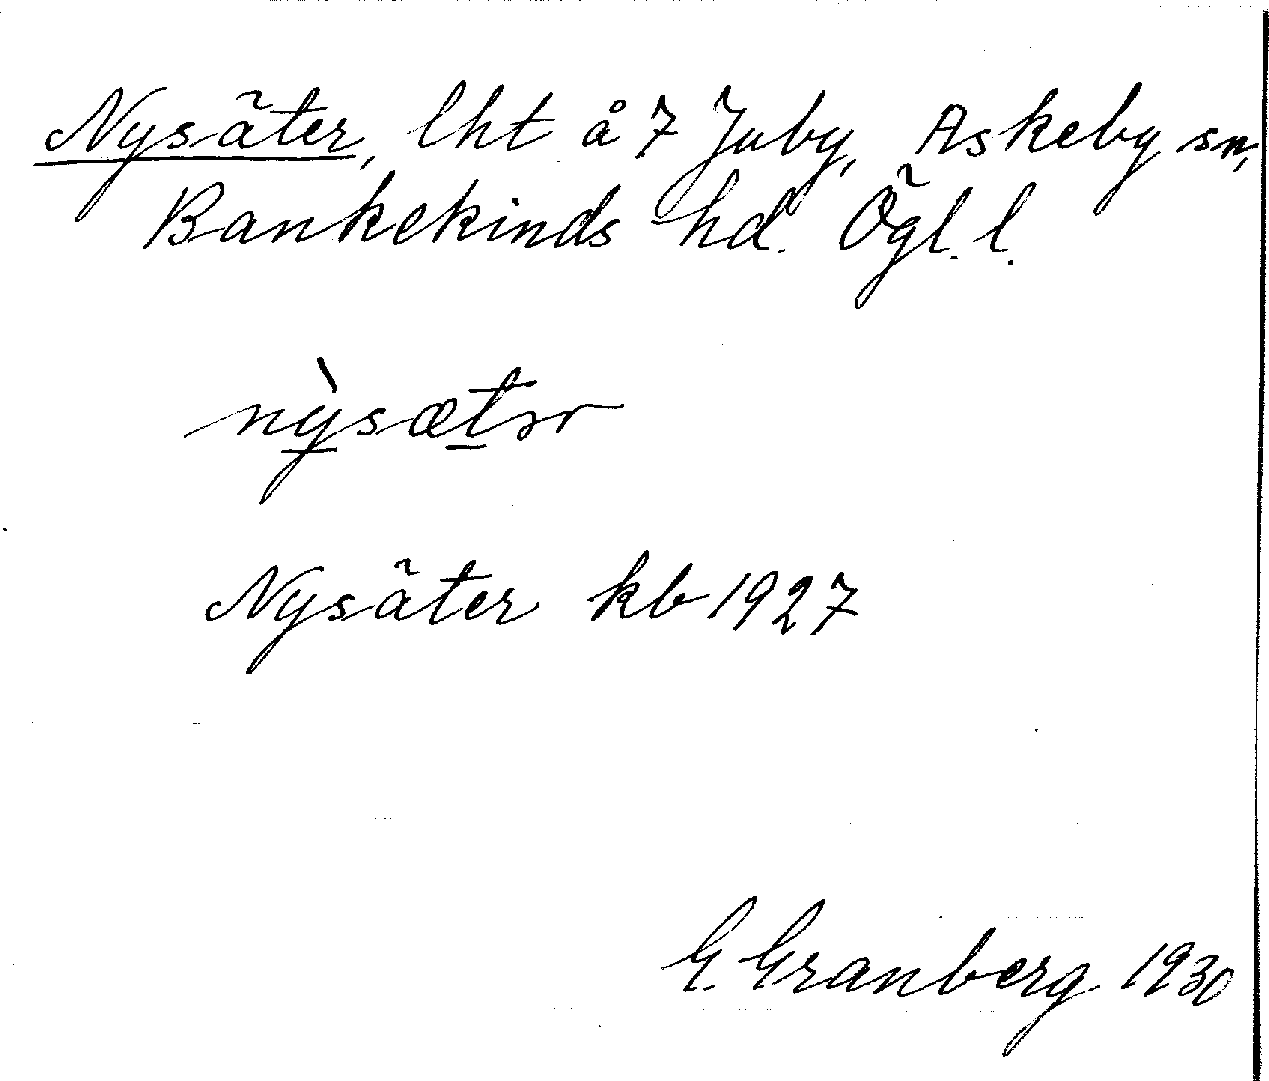 Nysäter, lht å 7 Juby, Askeby sn,
Bankekinds hd. Ögl. l.
nỳsætər
Nysäter kb 1927
G. Granberg 1930